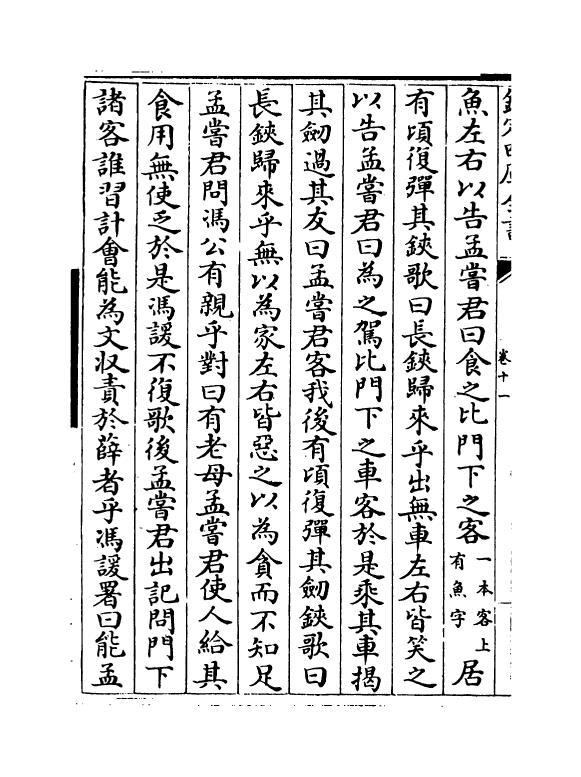 欽定四庫全書
卷十一
魚左右以告孟嘗君曰食之比門下之客一本客上有魚字居
有頃復彈其鋏歌曰長鋏歸來乎出無車左右皆笑之
以告孟嘗君曰為之駕比門下之車客於是乘其車揭
其劒過其友曰孟嘗君客我後有頃復彈其劒鋏歌曰
長鋏歸來乎無以為家左右皆惡之以為貪而不知足
孟嘗君問馮公有親乎對曰有老母孟嘗君使人給其
食用無使乏於是馮諼不復歌後孟嘗君出記問門下
諸客誰習計會能為文収責於薛者乎馮諼署曰能孟